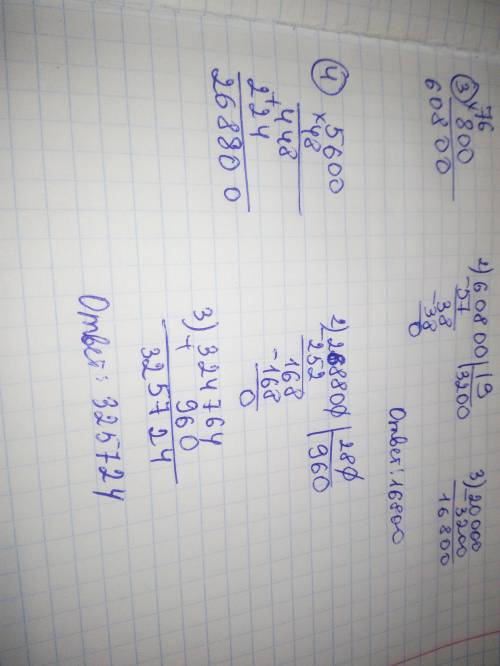 ③ 76
× 800
60800
2) 60800 | 19
- 57 | 3200
38
- 38
0
3) 20000
- 3200
16800
Ответ: 16800
④ 5600
× 48
448
+ 224
268800
2) 268800 | 280
252 | 960
168
- 168
0
3) 324764
+ 960
325724
Ответ: 325724